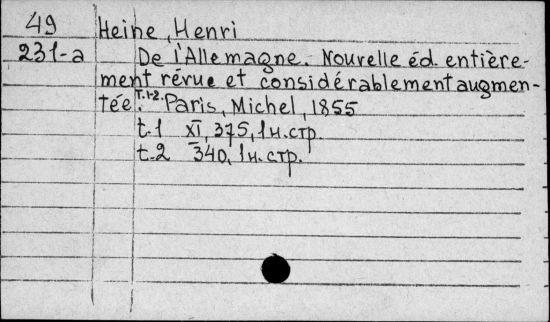 49 Heine, Henri
231-a De l'Allemagne. Nouvelle éd. entière-
ment révue et considérablement augmen-
tée. T.1-2. Paris, Michel, 1855
t.1 XI, 375, 1 н. стр.
t.2 340, 1 н. стр.